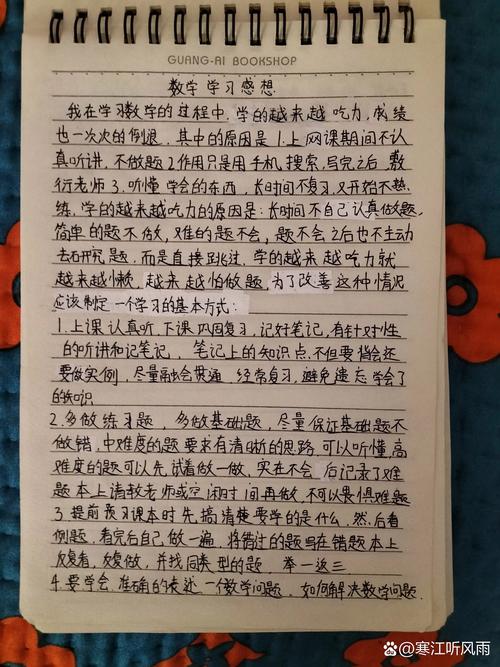 GUANG-AI BOOKSHOP
数学学习感想
我在学习数学的过程中,学的越来越吃力,成绩
也一次次的倒退.其中的原因是1.上网课期间不认
真听讲,不做题2.作用只是用手机搜索,写完之后敷
衍老师3.听懂学会的东西,长时间不复习,又开始不熟
练.学的越来越吃力的原因是:长时间不自己认真做题,
简单的题不做,难的题不会,题不会之后也不主动
去研究题,而是直接跳过.学的越来越吃力就
越来越懒,越来越怕做题,为了改善这种情况
应该制定一个学习的基本方式:
1.上课认真听,下课巩固复习,记好笔记,有针对性
的听讲和记笔记,笔记上的知识点不但要背会还
要做实例,尽量融会贯通,经常复习,避免遗忘学会了
的知识
2.多做练习题,多做基础题,尽量保证基础题不
做错,中难度的题要求有清晰的思路,可以听懂,高
难度的题可以先试着做一做,实在不会后记录了难
题本上请教老师或空闲时间再做,不可以畏惧难题
3.提前预习课本时先搞清楚要学的是什么,然后看
例题,看完后自己做一遍,将错过的题写在错题本上
反复看,反复做,并找同类型的题,举一返三
4.要学会准确的表述一个数学问题,如何解决数学问题.
Baidu百家号/寒江听风雨